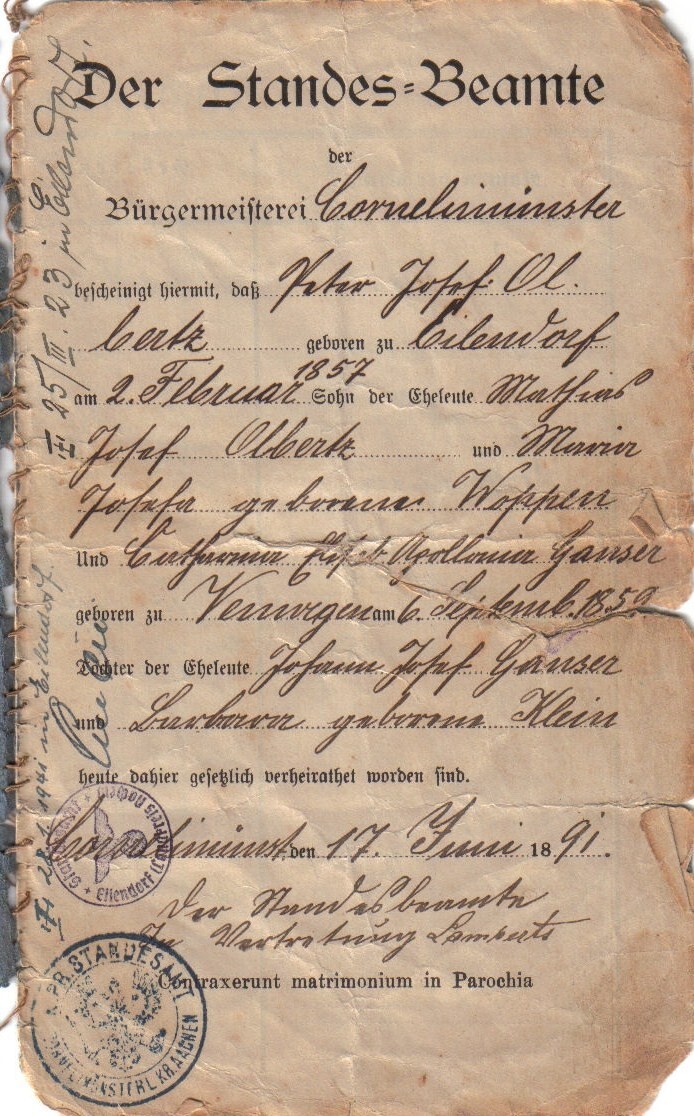 Der Standes=Beamte
der
Bürgermeisterei Cornelimünster
bescheinigt hiermit, daß Peter Josef Ol.
bertz geboren zu Eilendorf
am 2. Februar 1857 Sohn der Eheleute Mathias
Josef Olbertz und Maria
Josefa geborene Woppen
Und Catharina Elisab. Apollonia Ganser
geboren zu Venwegen am 6. Septemb. 1859
Tochter der Eheleute Johann Josef Ganser
und Barbara geborene Klein
heute dahier gesetzlich verheirathet worden sind.
Cornelimünst, den 17. Juni 1891.
Der Standesbeamte
In Vertretung Lamberts
Contraxerunt matrimonium in Parochia
25/III. 23 in Eilendorf.
28.1.1941 in Eilendorf.
Standesamt Eilendorf (Landkreis Aachen)
K. PR. STANDESAMT
CORNELIMÜNSTER L. KR. AACHEN